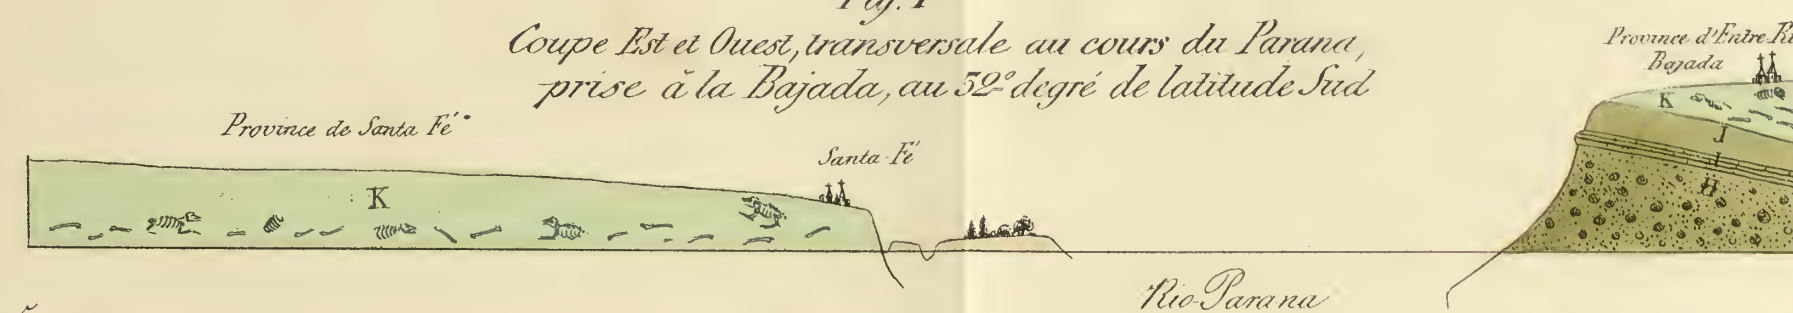 Fig. 1
Coupe Est et Ouest, transversale au cours du Parana,
prise à la Bajada, au 32.e degré de latitude Sud
Province d'Entre
Bajada
Province de Santa Fé
Santa-Fé
K
J
I
H
K
Rio-Parana